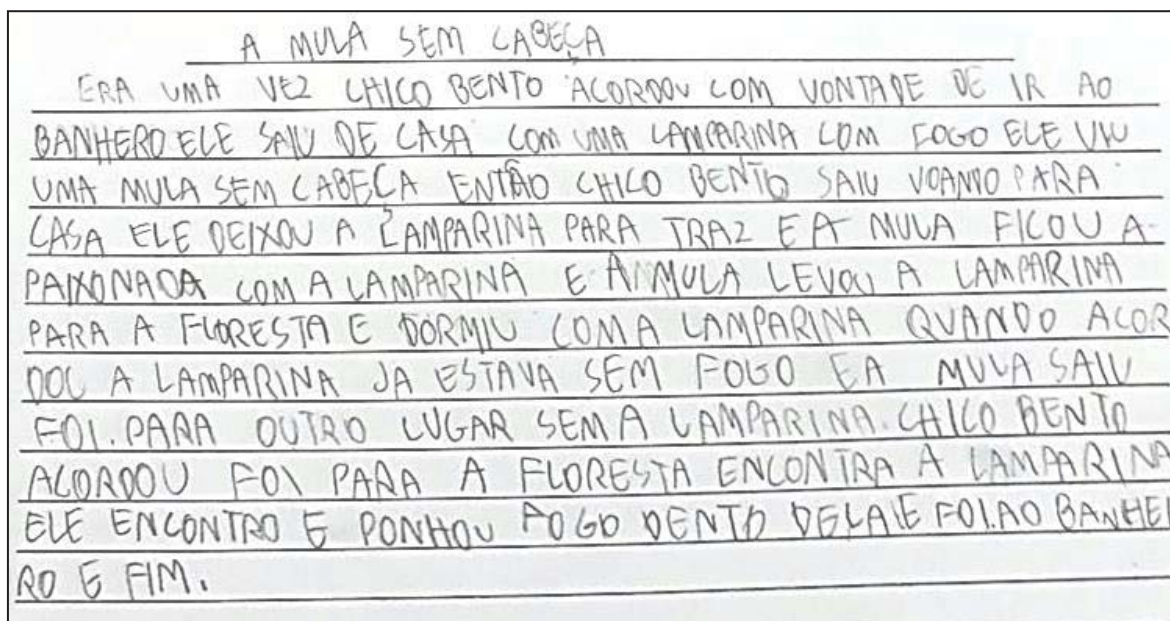 A MULA SEM CABEÇA
ERA UMA VEZ CHICO BENTO ACORDOU COM VONTADE DE IR AO
BANHERO ELE SAIU DE CASA COM UMA LAMPARINA COM FOGO ELE VIU
UMA MULA SEM CABEÇA ENTÃO CHICO BENTO SAIU VOANDO PARA
CASA ELE DEIXOU A LAMPARINA PARA TRAZ E A MULA FICOU A-
PAIXONADA COM A LAMPARINA E A MULA LEVOU A LAMPARINA
PARA A FLORESTA E DORMIU COM A LAMPARINA QUANDO ACOR
DOU A LAMPARINA JA ESTAVA SEM FOGO E A MULA SAIU
FOI PARA OUTRO LUGAR SEM A LAMPARINA. CHICO BENTO
ACORDOU FOI PARA A FLORESTA ENCONTRA A LAMPARINA
ELE ENCONTRO E PONHOU FOGO DENTO DELA E FOI.AO BANHEI
RO E FIM.